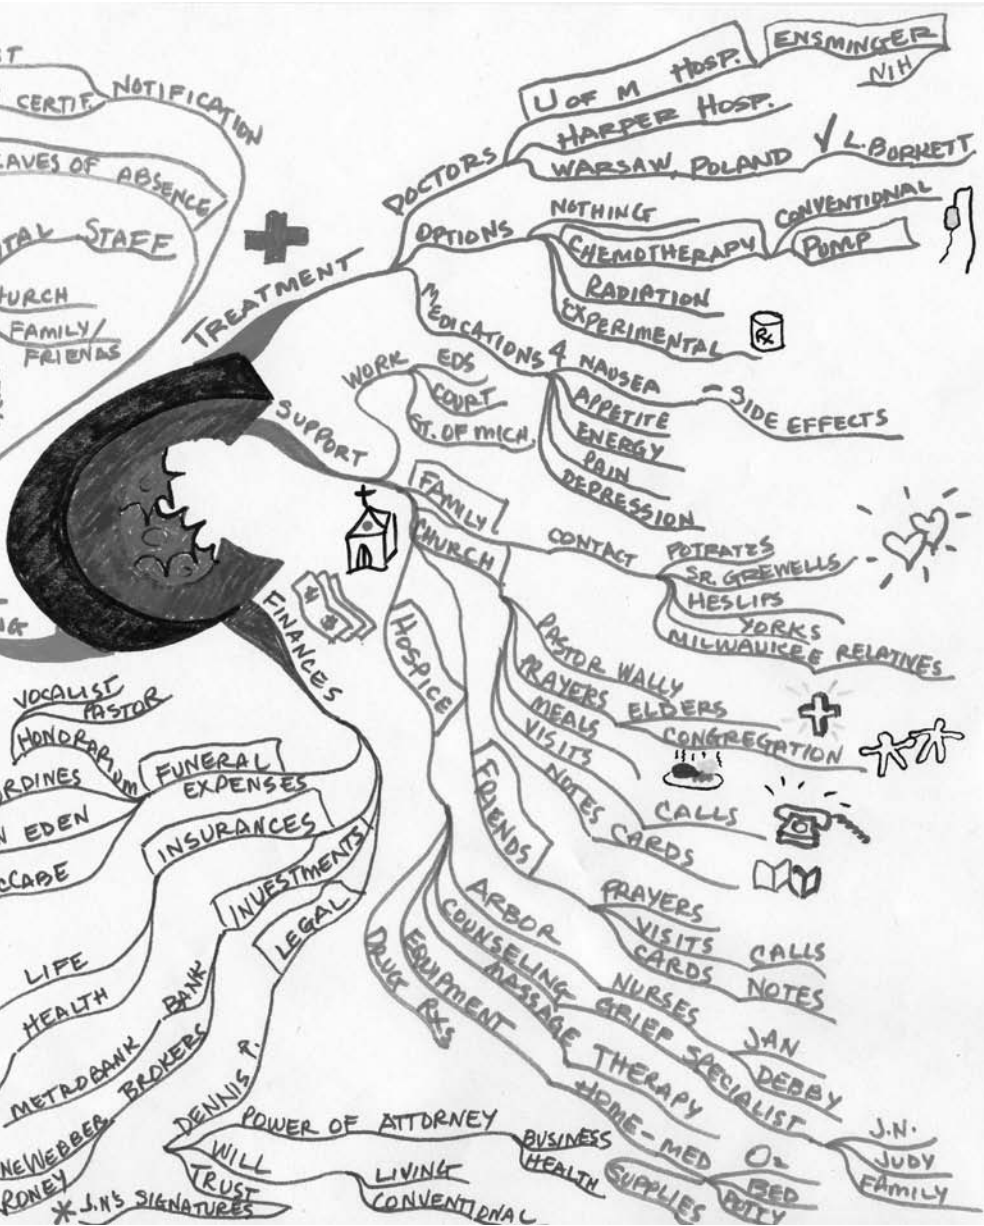 CERTIF.
NOTIFICATION
AVES OF ABSENCE
STAFF
URCH
FAMILY/
FRIENDS
TREATMENT
DOCTORS
U OF M HOSP.
ENSMINGER
NIH
HARPER HOSP.
WARSAW, POLAND
√ L. BORKETT
OPTIONS
NOTHING
CHEMOTHERAPY
CONVENTIONAL
PUMP
RADIATION
EXPERIMENTAL
Rx
MEDICATIONS 4
NAUSEA - SIDE EFFECTS
APPETITE
ENERGY
PAIN
DEPRESSION
SUPPORT
WORK
EDS
COURT
ST. OF MICH.
FAMILY
CHURCH
CONTACT
POTRATZS
SR. GREWELLS
HESLIPS
YORKS
MILWAUKEE RELATIVES
PASTOR WALLY
PRAYERS
ELDERS
CONGREGATION
MEALS
VISITS
NOTES
CALLS
CARDS
FRIENDS
PRAYERS
VISITS
CALLS
CARDS
NOTES
HOSPICE
ARBOR
NURSES
JAN
DEBBY
COUNSELING
GRIEF SPECIALIST
J.N.
JUDY
FAMILY
MASSAGE THERAPY
EQUIPMENT
HOME-MED
O2
BED
POTTY
SUPPLIES
DRUG RXS
FINANCES
$
$
FUNERAL
EXPENSES
VOCALIST
PASTOR
HONORARIUM
RDINES
N EDEN
CCABE
INSURANCES
LIFE
HEALTH
INVESTMENTS
BANK
METROBANK
BROKERS
NEWEBBER
RONEY
LEGAL
DENNIS P.
POWER OF ATTORNEY
BUSINESS
HEALTH
WILL
LIVING
CONVENTIONAL
TRUST
* J.N'S SIGNATURES